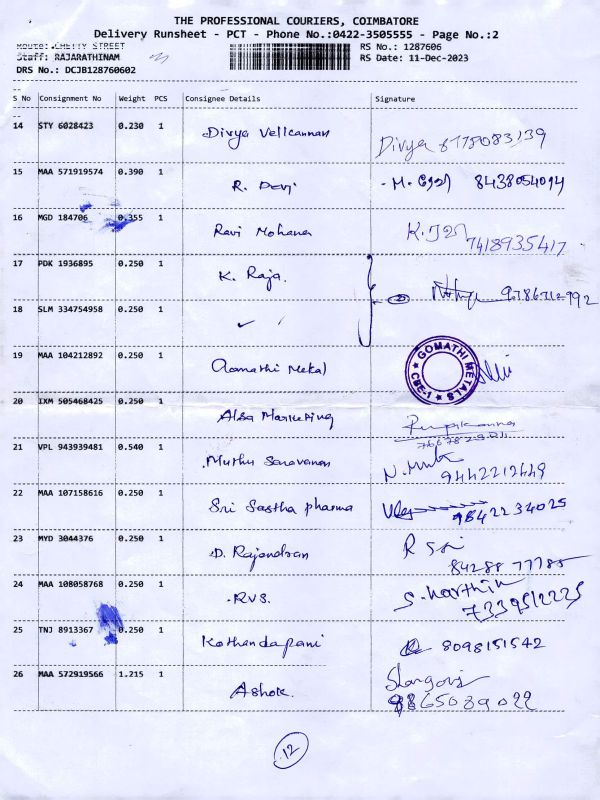 THE PROFESSIONAL COURIERS, COIMBATORE
Delivery Runsheet - PCT - Phone No.:0422-3505555 - Page No.:2
Route: CHETTY STREET RS No.: 1287606
Staff: RAJARATHINAM RS Date: 11-Dec-2023
DRS No.: DCJB128760602
S No Consignment No Weight PCS Consignee Details Signature
14 STY 6028423 0.230 1 Divya Vellcannan Divya
15 MAA 571919574 0.390 1 R. Devi 8438054014
16 MGD 184706 0.355 1 Ravi Mohana 7418935417
17 PDK 1936895 0.250 1 K. Raja.
18 SLM 334754958 0.250 1 ✓
19 MAA 104212892 0.250 1 Gomathi Metal GOMATHI METALS CBE-1
20 IXM 505468425 0.250 1 Alsa Marketing
21 VPL 943939481 0.540 1 Muthu Saravanan 9442212449
22 MAA 107158616 0.250 1 Sri Sastha pharma 9842234025
23 MYD 3044376 0.250 1 D. Rajendran 84288 77785
24 MAA 108058768 0.250 1 RVS. S. Karthik 7339512225
25 TNJ 8913367 0.250 1 Kothandapani 8098151542
26 MAA 572919566 1.215 1 Ashok. 9865089022
12